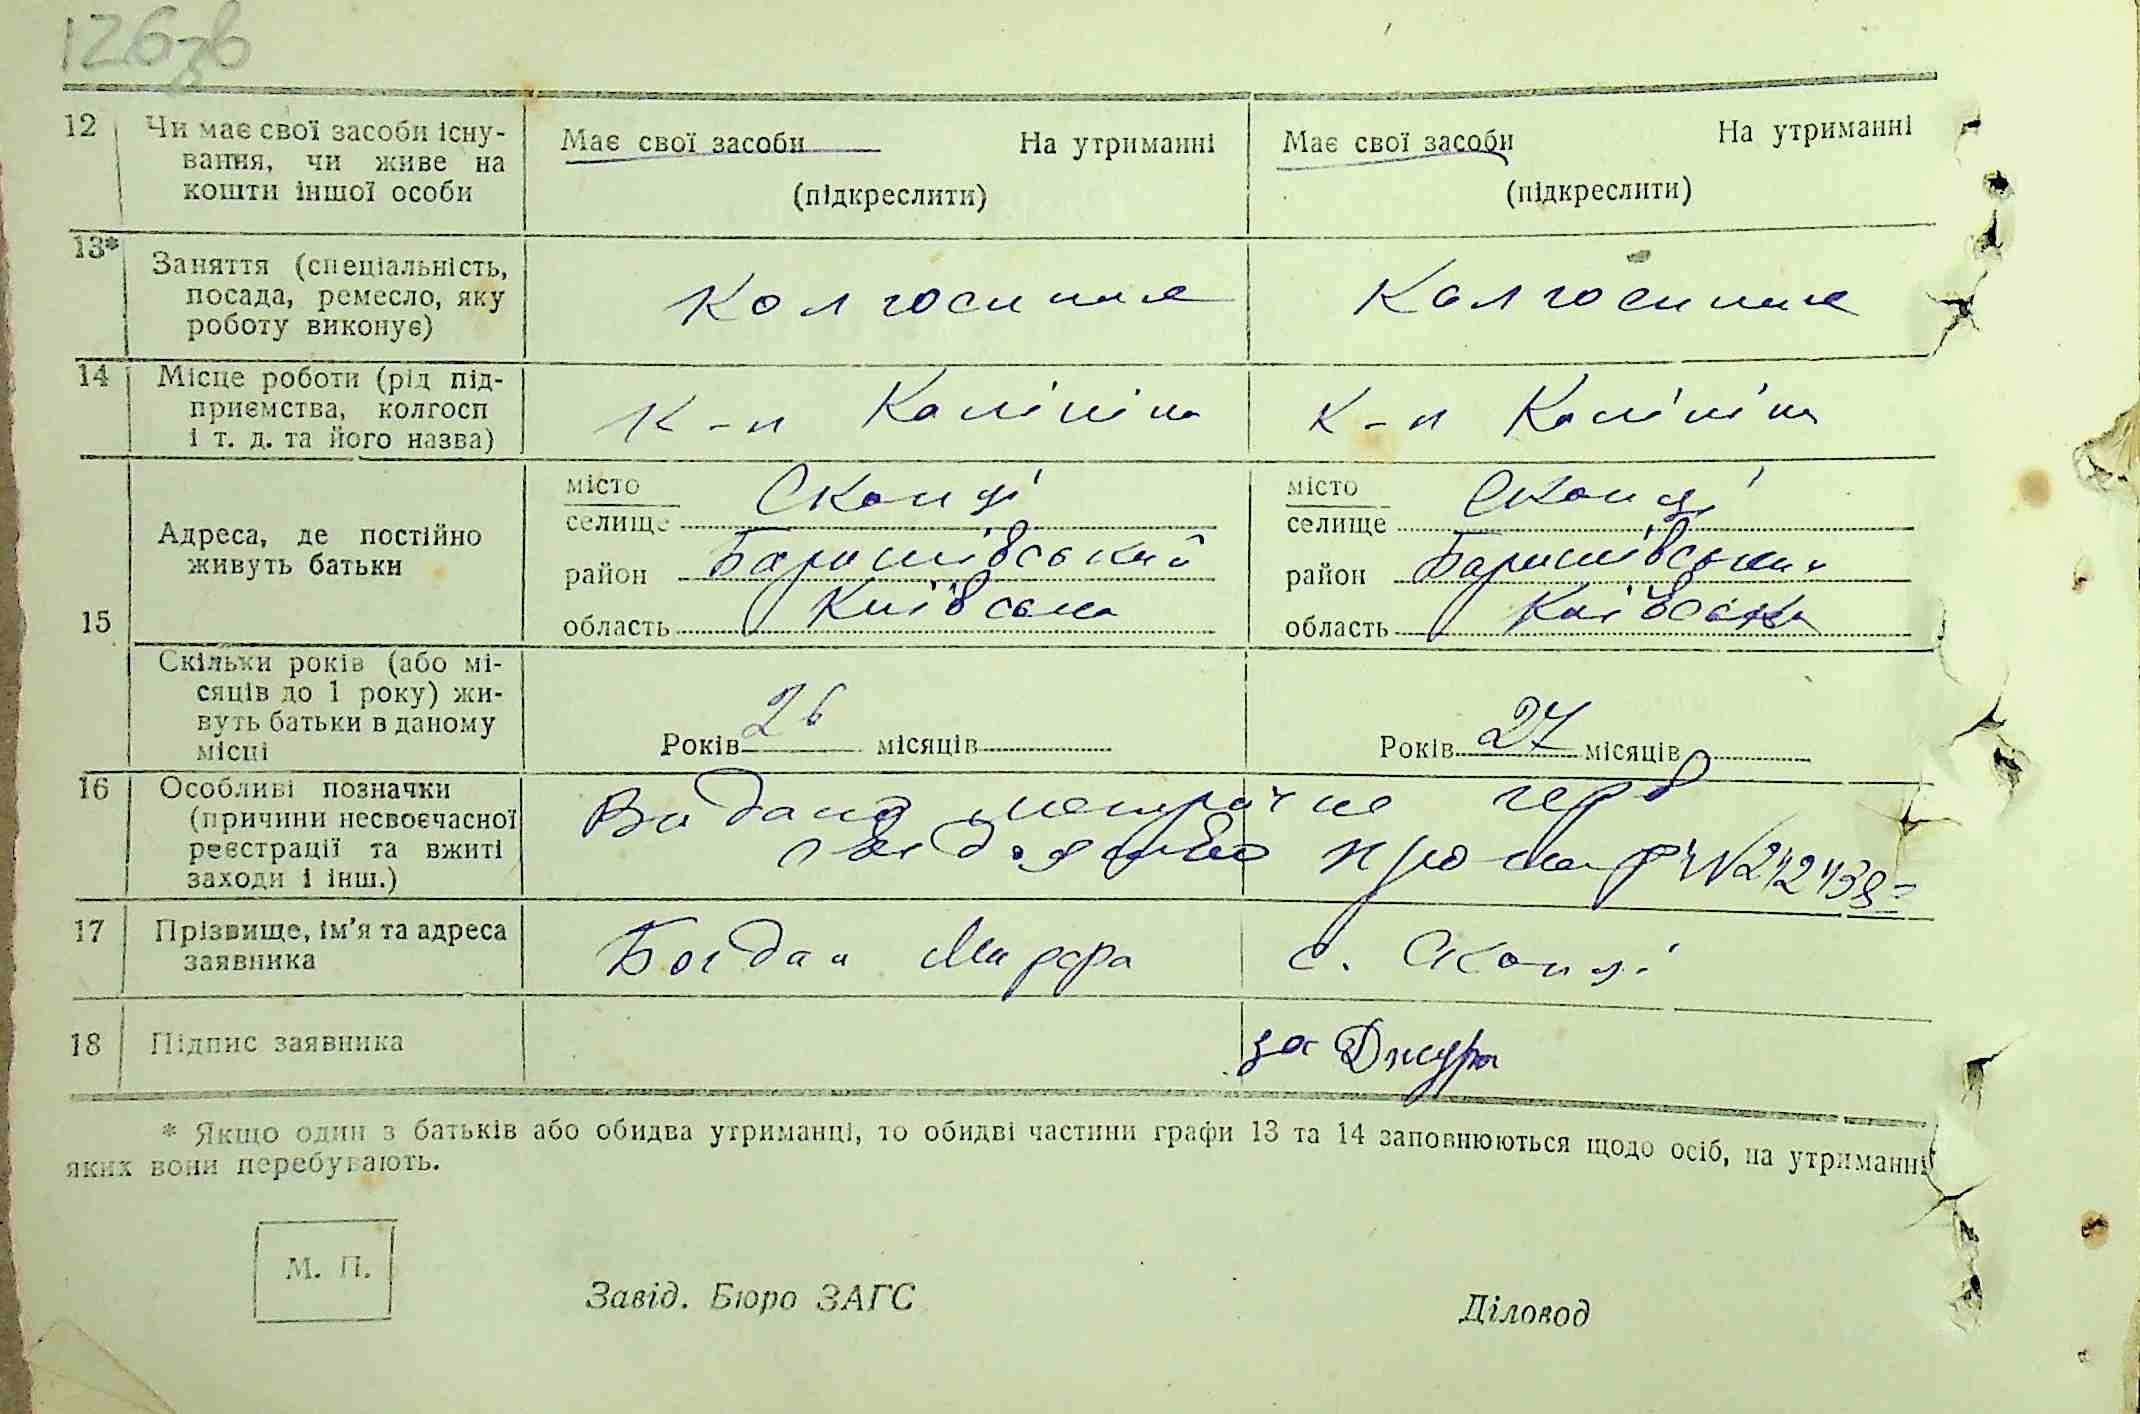 126зв
12 Чи має свої засоби існу- Має свої засоби На утриманні Має свої засоби На утриманні
вання, чи живе на
кошти іншої особи (підкреслити) (підкреслити)
13* Заняття (спеціальність,
посада, ремесло, яку Колгоспник Колгоспниця
роботу виконує)
14 Місце роботи (рід під-
приємства, колгосп К-п Калініна К-п Калініна
і т. д. та його назва)
місто Скопці місто Скопці
селище селище
15 Адреса, де постійно
живуть батьки район Баришівський район Баришівський
область Київська область Київська
Скільки років (або мі-
сяців до 1 року) жи-
вуть батьки в даному
місці Років 26 місяців Років 27 місяців
16 Особливі позначки Видано метричне герб
(причини несвоєчасної
реєстрації та вжиті свідоцтво про нар
заходи і інш.)
17 Прізвище, ім'я та адреса Богдан Марфа с. Скопці
заявника
18 Підпис заявника за Джура
* Якщо один з батьків або обидва утриманці, то обидві частини графи 13 та 14 заповнюються щодо осіб, на утриманні
яких вони перебувають.
М. П.
Завід. Бюро ЗАГС Діловод